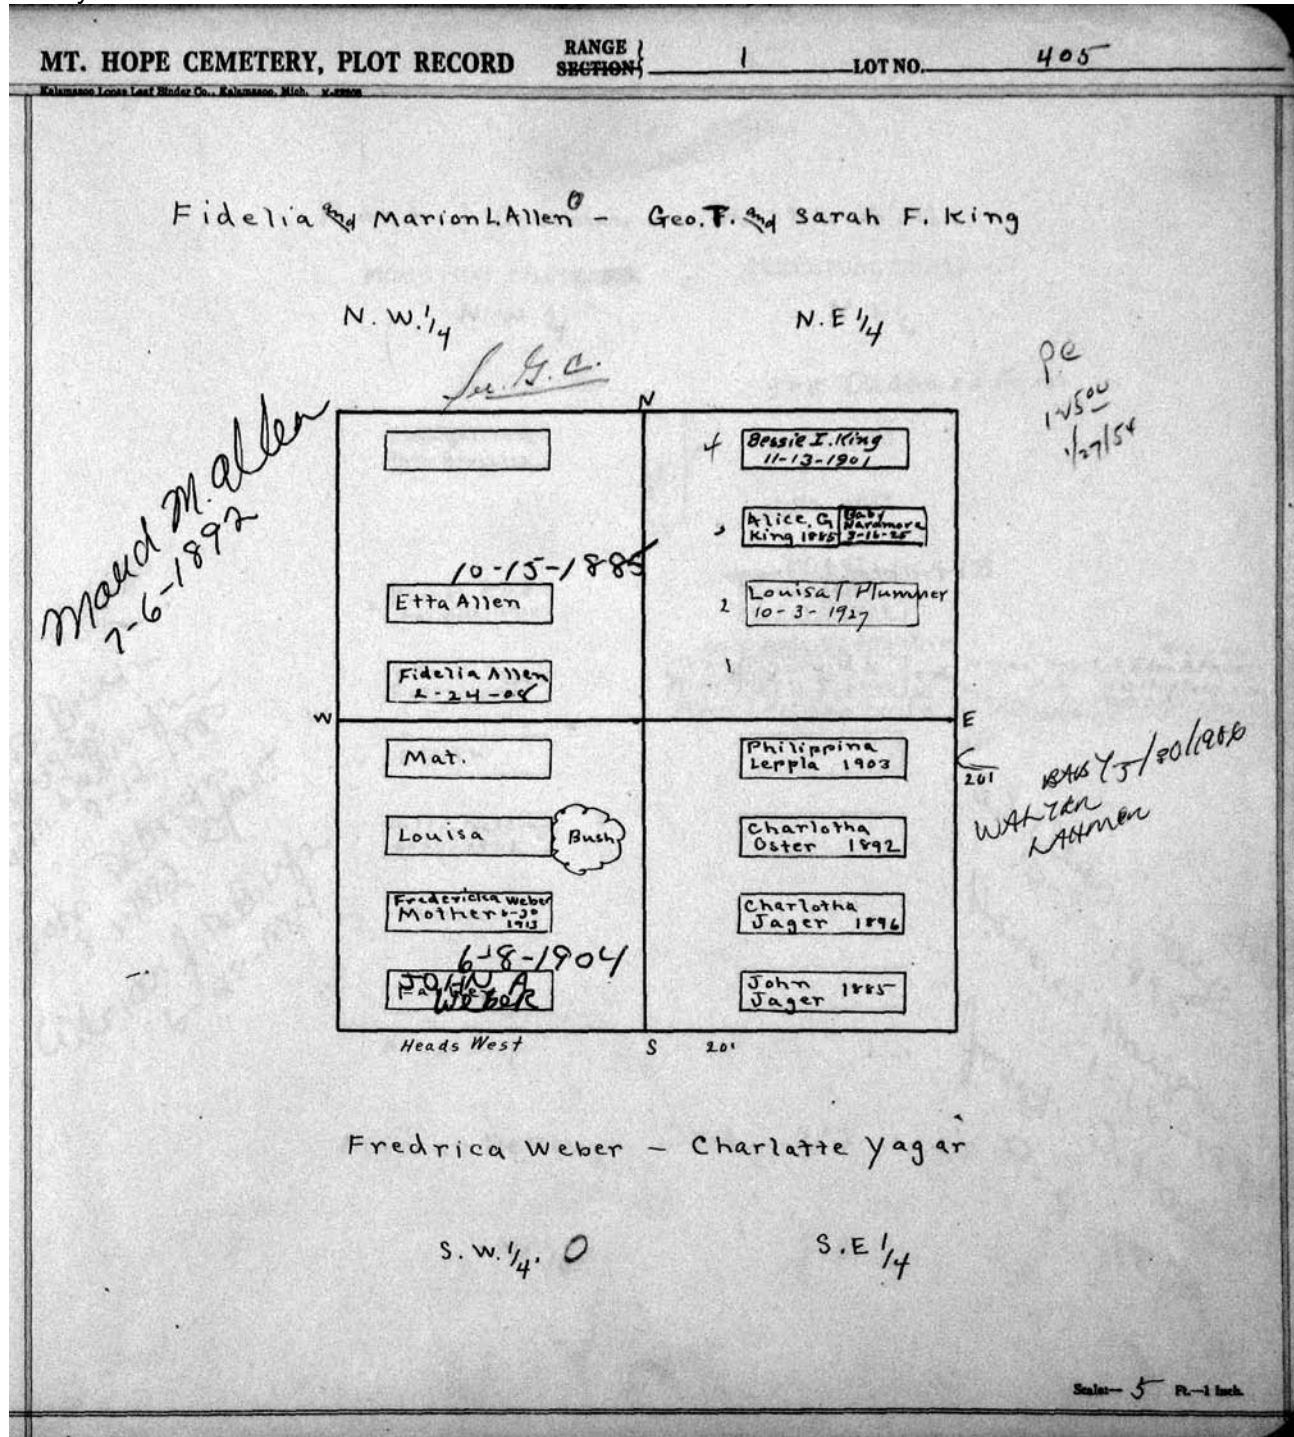 MT. HOPE CEMETERY, PLOT RECORD RANGE SECTION 1 LOT NO. 405
Kalamazoo Loose Leaf Binder Co., Kalamazoo, Mich.
Fidelia and Marion L. Allen – Geo. F. and Sarah F. King
N. W. 1/4 N. E 1/4
G. C.
pc
12500
1/27/54
Maud M. Allen
7-6-1892
N
4 Bessie I. King
11-13-1901
3 Alice G King 1885
Baby
10-15-1885
Etta Allen
2 Louisa T Plummer
10-3-1927
Fidelia Allen
2-24-08
1
W E
Mat.
Philippina
Leppla 1903
201
BABY 5/30/1986
WALTER
Louisa Bush
Charlotha
Oster 1892
Fredericka Weber
Mother 6-30
1913
Charlotha
Jager 1896
6-8-1904
JOHN A
Weber
John
Jager 1885
Heads West S 201
Fredrica Weber – Charlatte Yagar
S. W. 1/4. 0 S. E 1/4
Scale:— 5 Ft.—1 Inch.